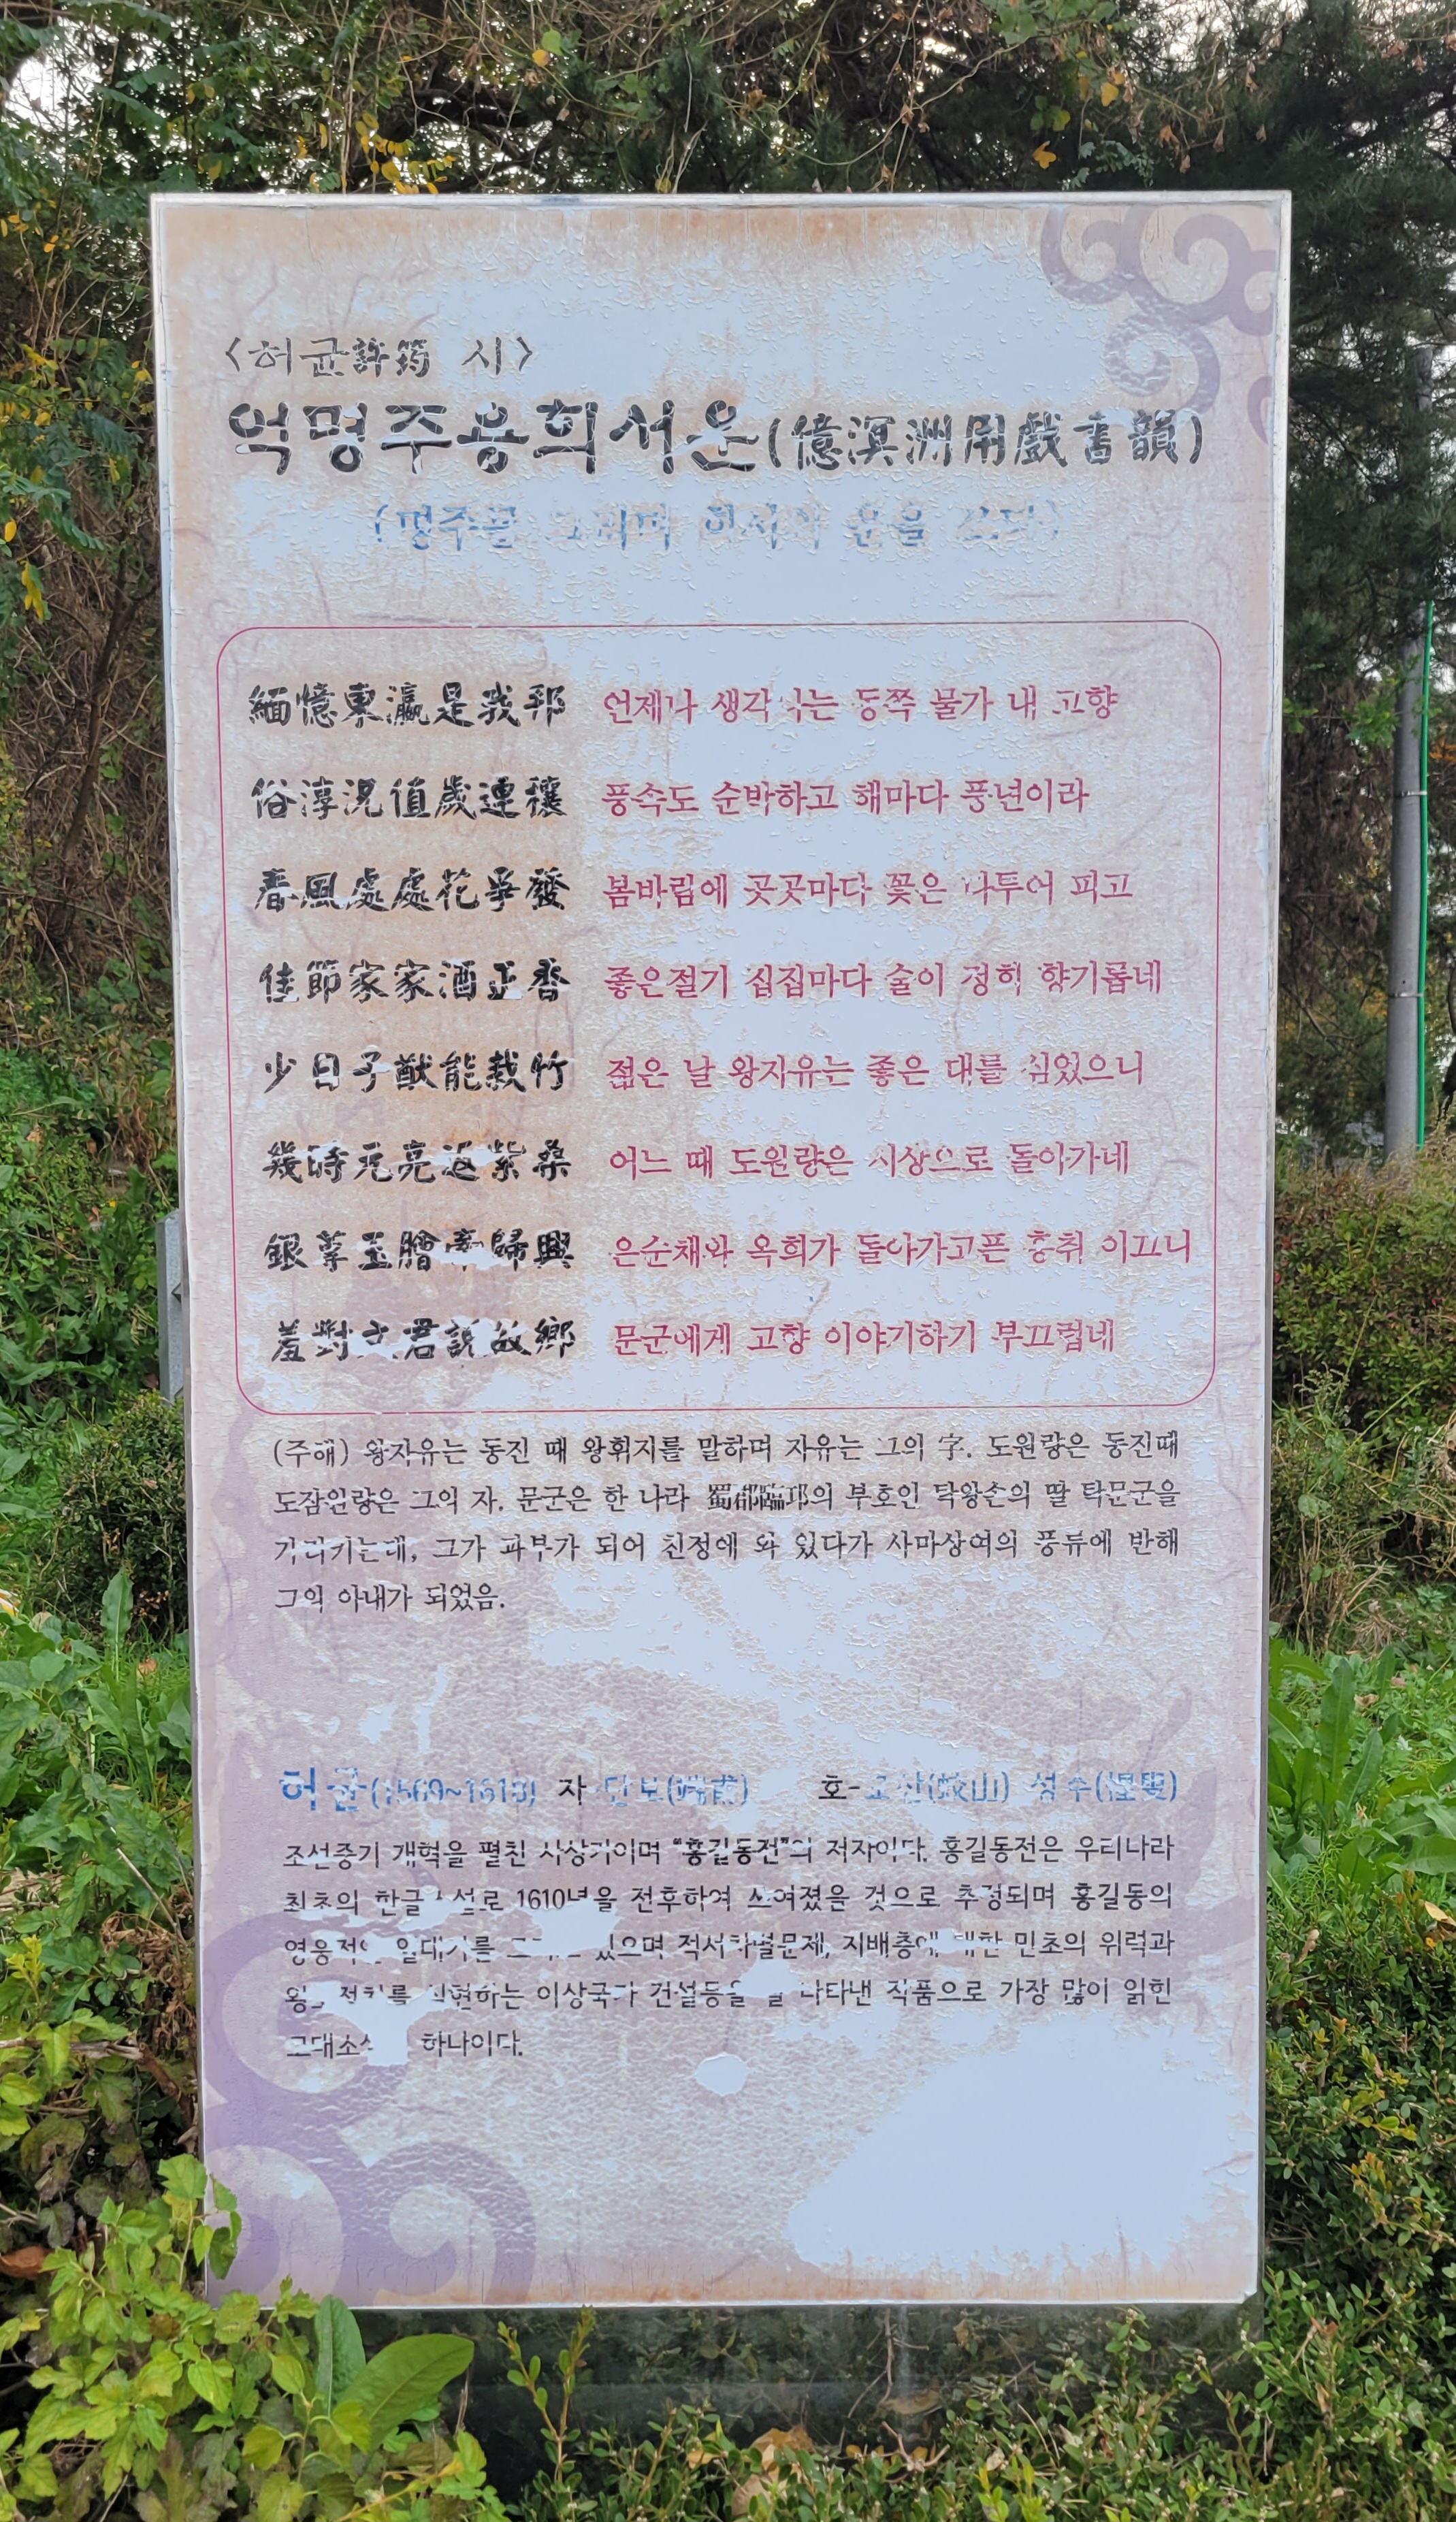 <허균許筠 시>
억명주용희서운(億溟洲用戲書韻)
(명주를 그리며 희서의 운을 쓰다)
緬憶東瀛是我邦 언제나 생각나는 동쪽 물가 내 고향
俗淳況値歲連穰 풍속도 순박하고 해마다 풍년이라
春風處處花爭發 봄바람에 곳곳마다 꽃은 다투어 피고
佳節家家酒正香 좋은절기 집집마다 술이 정히 향기롭네
少日子猷能栽竹 젊은 날 왕자유는 좋은 대를 심었으니
幾時元亮返紫桑 어느 때 도원량은 시상으로 돌아가네
銀蓴玉膾牽歸興 은순채와 옥회가 돌아가고픈 흥취 이끄니
羞對文君說故鄕 문군에게 고향 이야기하기 부끄럽네
(주해) 왕자유는 동진 때 왕휘지를 말하며 자유는 그의 字. 도원량은 동진때
도잠원량은 그의 자. 문군은 한 나라 蜀郡臨邛의 부호인 탁왕손의 딸 탁문군을
가리키는데, 그가 과부가 되어 친정에 와 있다가 사마상여의 풍류에 반해
그의 아내가 되었음.
허균(1569~1618) 자-단보(端甫) 호-교산(蛟山) 성수(惺叟)
조선중기 개혁을 펼친 사상가이며 "홍길동전"의 저자이다. 홍길동전은 우리나라
최초의 한글소설로 1610년을 전후하여 쓰여졌을 것으로 추정되며 홍길동의
영웅적인 일대기를 있으며 적서차별문제, 지배층에 대한 민초의 위력과
정치를 실현하는 이상국가 건설등을 나타낸 작품으로 가장 많이 읽힌
고대소설 하나이다.